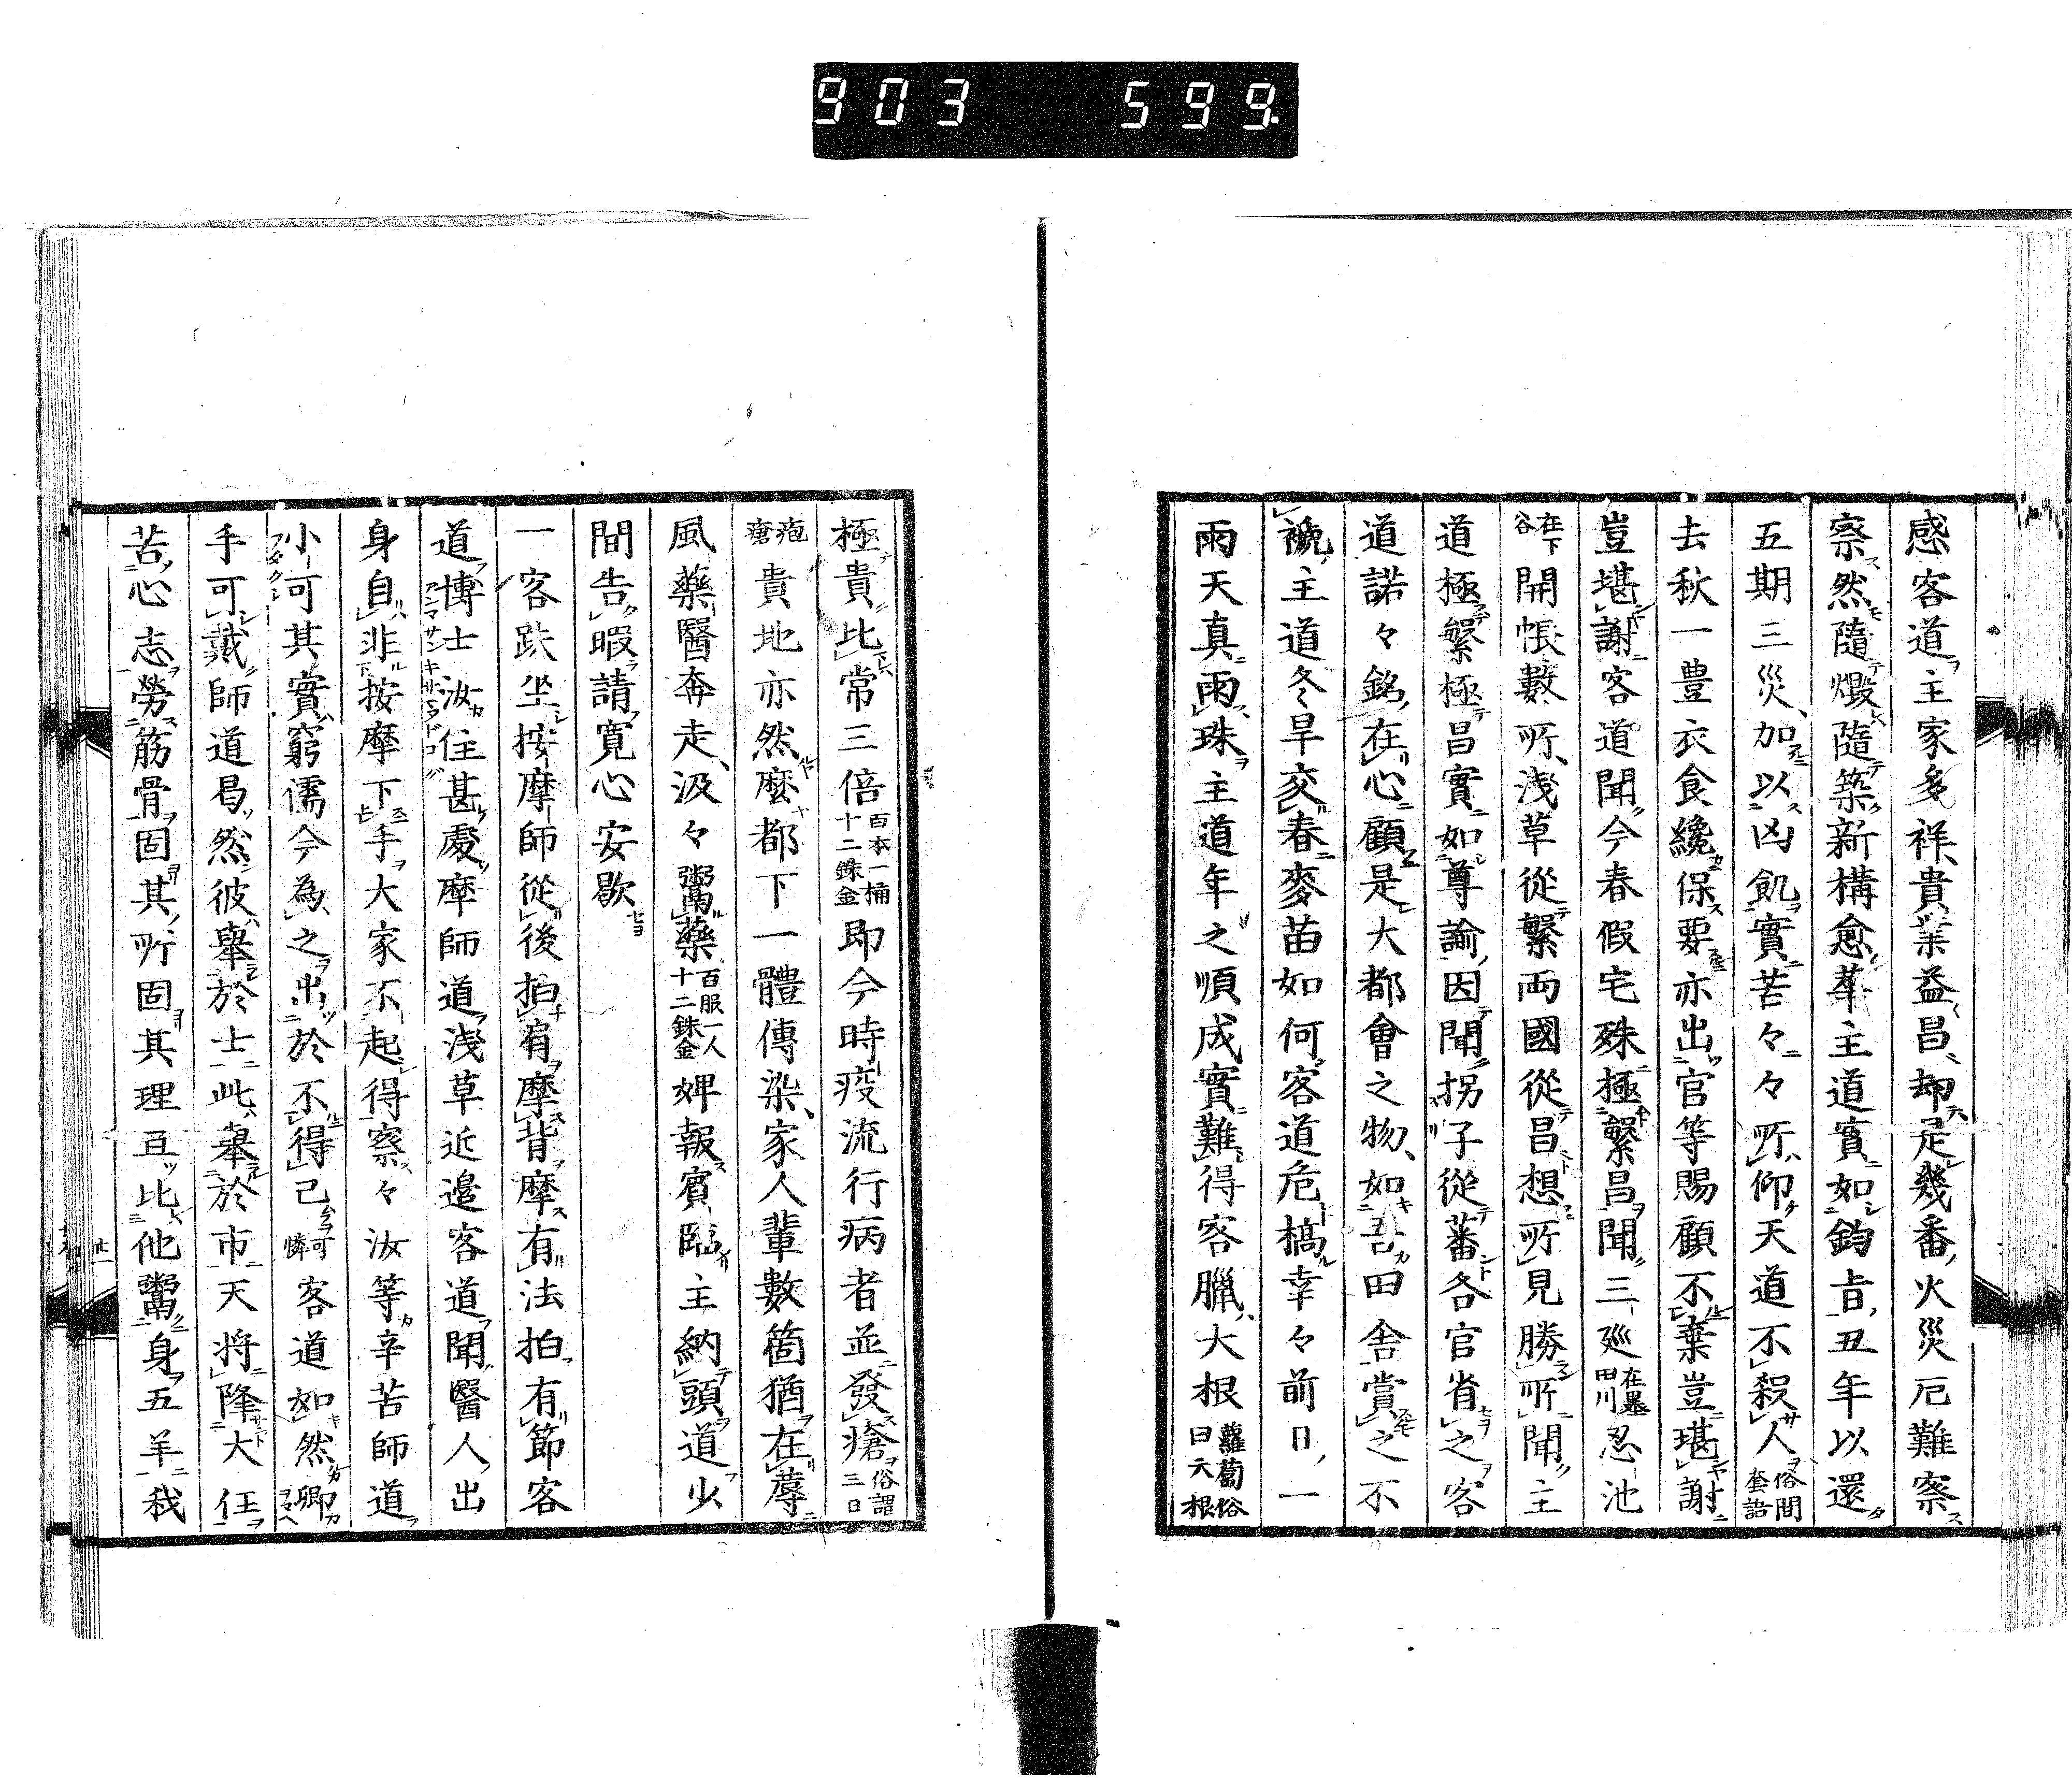 903 599.
感客道主家多祥貴業益昌却是幾番火災厄難察
察然隨燬隨築新構愈華主道實如鈞旨丑年以還
五期三災加以凶飢實苦々々所仰天道不殺人俗間套語
去秋一豊衣食纔保要亦出官等賜顧不棄豈堪謝
豈堪謝客道聞今春假宅殊極繁昌聞三廵在墨田川忍池
在下谷開帳數所淺草從繫両國從昌想所見勝所聞主
道極繁極昌實如尊諭因聞拐子從蕃各官省之客
道諾々銘在心顧是大都會之物如吾田舎賞之不
褫主道冬旱交春麥苗如何客道危槁幸々前日一
雨天真雨珠主道年之順成實難得客臘大根蘿蔔俗曰大根
極貴比常三倍百本一桶十二銖金即今時疫流行病者並發瘡俗謂三日
疱瘡貴地亦然麼都下一體傳染家人輩數箇猶在蓐
風藥醫奔走汲々鬻藥百服一人十二銖金婢報賓臨主納頭道少
間告暇請寛心安歇
一客趺坐按摩師從後拍肩摩背摩有法拍有節客
道博士汝住甚處摩師道淺草近邉客道聞醫人出
身自非按摩下手大家不起得察々汝等辛苦師道
小可其實窮儒今為之出於不得已可憐客道如然卿
手可戴師道曷然彼舉於士此舉於市天将降大任
苦心志勞筋骨固其所固其理互比他鬻身五羊我